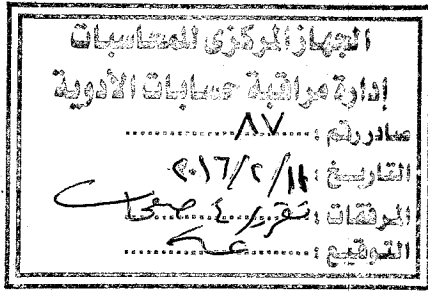 الجهاز المركزى للمحاسبات
إدارة مراقبة حسابات الأدوية
صادر رقم : ٨٧
التاريخ : ١١/٢/٢٠١٦
المرفقات : تقرير ٤ صفحات
التوقيع :